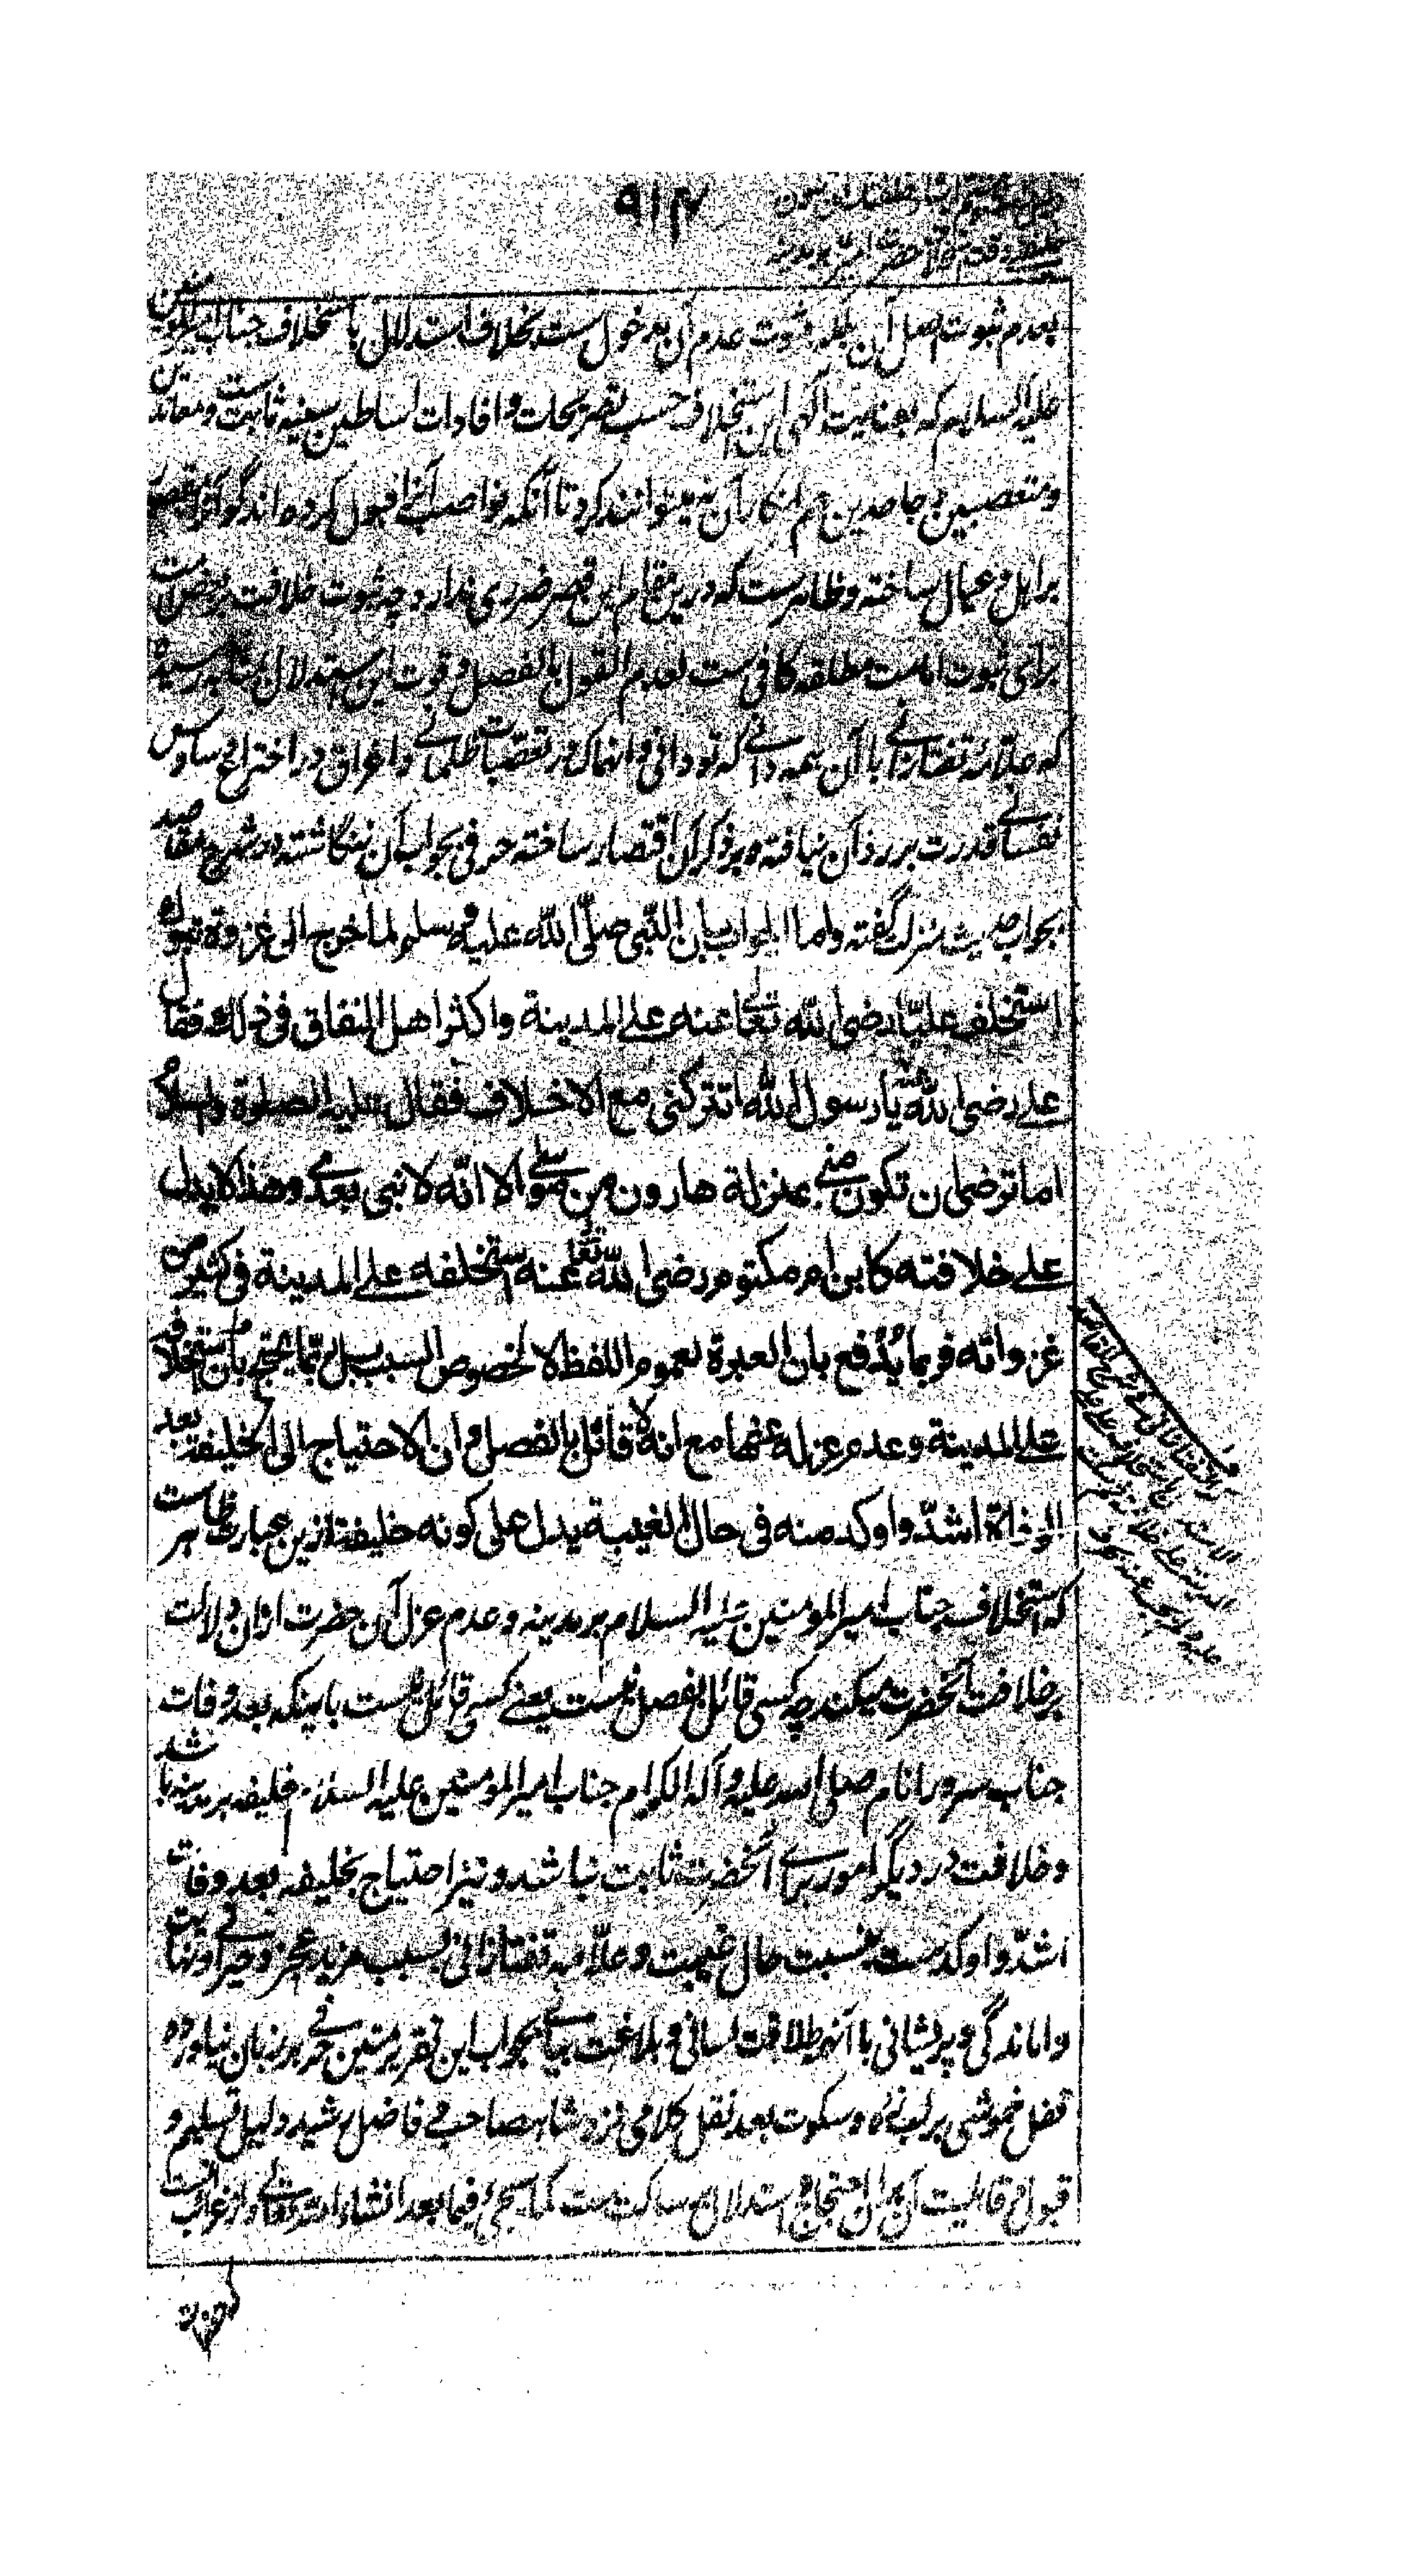 ۹۱۴
بعدم ثبوت اصل آن بلکه ثبوت عدم آن مدخول ست بخلاف استدلال باستخلاف جناب امیرالمومنین
علیه السلام که بعنایت الٰهی این استخلاف حسب تصریحات و افادات اساطین سنیه ثابت ست و معاندین
و متعصبین و جاحدین هم انکار آن نمیتوانند کرد تا آنکه نواصب آنرا قبول کرده اند گو آنرا مقصور
بر اهل و عیال ساخته و ظاهرست که درین مقام این قصر ضرری ندارد چه ثبوت خلافت بعض امت
برای ثبوت امامت مطلقه کافی ست لعدم القول بالفصل و قوت این استدلال بمثابه رسیده
که علامه تفتازانی با آن همه دانی که تو دانی و انهماک در تعصبات ظلمانی و اغراق در اختراع وساوس
نفسانی قدرت بر رد آن نیافته و بر ذکر آن اقتصار ساخته حرفی بجواب آن ننگاشته در شرح مقاصد
بجواب حدیث منزلت گفته واما الجواب بان النّبی صلّی اللّه علیه و سلم لما خرج الی غزوة تبوک
استخلف علیّا رضی اللّه تعالی عنه علی المدینة واکثر اهل النفاق فی ذلک فقال
علی رضی اللّه عنه یا رسول اللّه اتترکنی مع الاخلاف فقال علیه الصلوة والسلام
اما ترضی ان تکون منی بمنزلة هارون من موسی الا انّه لا نبی بعدی و هذا لا یدل
علی خلافته کابن ام مکتوم رضی اللّه تعالی عنه استخلفه علی المدینة فی کثیر من
غزواته فربما یُدفع بان العبرة لعموم اللفظ لا لخصوص السبب بل ربّما یحتج بان استخلافه
علی المدینة و عدم عزله عنها مع انه لا قائل بالفصل و ان الاحتیاج الی الخلیفة بعد
الوفاة اشدّ و اوکد منه فی حال الغیبة یدل علی کونه خلیفة ازین عبارت ظاهرست
که استخلاف جناب امیرالمومنین علیه السلام بر مدینه و عدم عزل آن حضرت ازان دلالت
بر خلافت آنحضرت میکند چه کسی قائل بفصل نیست یعنی کسی قائل نیست باینکه بعد وفات
جناب سرور انام صلی الله علیه و آله الکرام جناب امیرالمومنین علیه السلام خلیفه بر مدینه باشد
و خلافت در دیگر امور برای آنحضرت ثابت نباشد و نیز احتیاج بخلیفه بعد وفات
اشدّ و اوکدست بنسبت حال غیبت و علّامه تفتازانی بسبب مزید عجز و حیرانی و نهایت
واماندگی و پریشانی با آنهمه طلاقت لسانی و بلاغت بیانی بجواب این تقریر متین حرفی بر زبان نیاورده
قفل خموشی بر لب زده و سکوت بعد نقل کلامی نزد شاهصاحب و فاضل رشید دلیل تسلیم و
قبول و قابلیت آن برای احتجاج و استدلال بر ساکت ست کما سیجیٔ فیما بعد انشاء الله تعالی و از غرائب